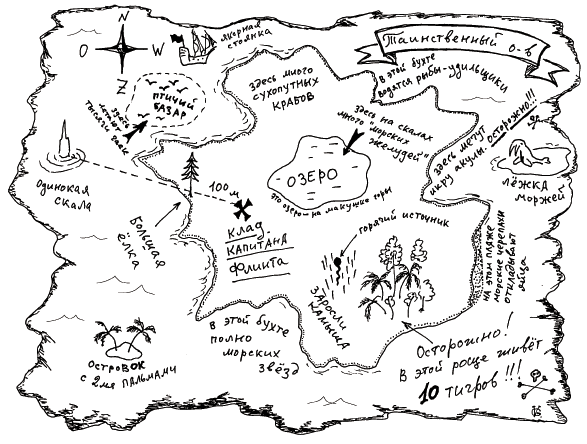 N
O
W
Z
якорная
стоянка
Таинственный о-в
В этой бухте
водятся рыбы-удильщики
Здесь много
сухопутных
крабов
птичий
базар
здесь
тысячи
Здесь на скалах
много "морских
желудей"
Здесь мечут
икру акулы. Осторожно!!!
лёжка
моржей
Одинокая
скала
100 м
озеро
это озеро на макушке горы
Большая
ёлка
клад
капитана
Флинта
горячий источник
заросли
камыша
на этом пляже
морские черепахи
откладывают
яйца
В этой бухте
полно
морских
звёзд
Островок
с 2мя пальмами
Осторожно!
В этой роще живёт
10 тигров!!!